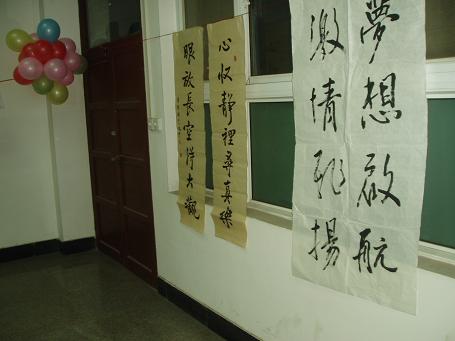 夢想啟航
激情飛揚
心收靜裡尋真樂
眼放長空得大觀